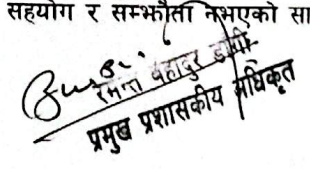 सहयोग र सम्झौता नभएको सा
रमन्त बहादुर डाँगी
प्रमुख प्रशासकीय अधिकृत